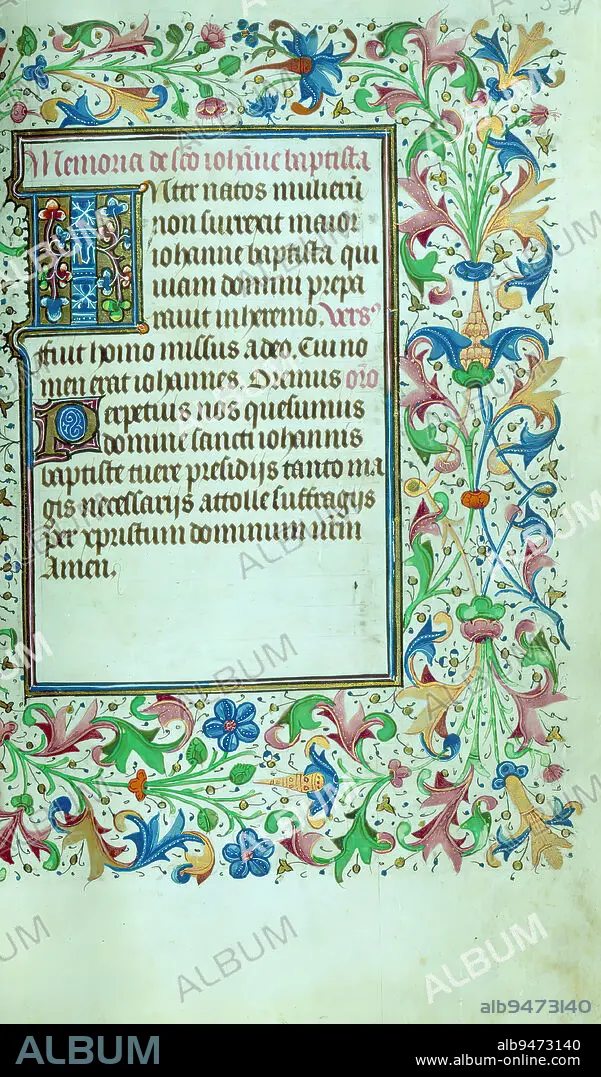 Memoria de sco iohãne baptista
Inter natos mulierũ
non surrexit maior
iohanne baptista qui
uiam domini prepa
rauit in heremo. Vers⁹
fuit homo missus a deo. Cui no
men erat iohannes. Oremus orõ
Perpetuis nos quesumus
domine sancti iohannis
baptiste tuere presidijs tanto ma
gis necessarijs attolle suffragijs
Per xpristum dominum nr̃m
Amen.
ALBUM
alb9473140
alb9473140
www.album-online.com